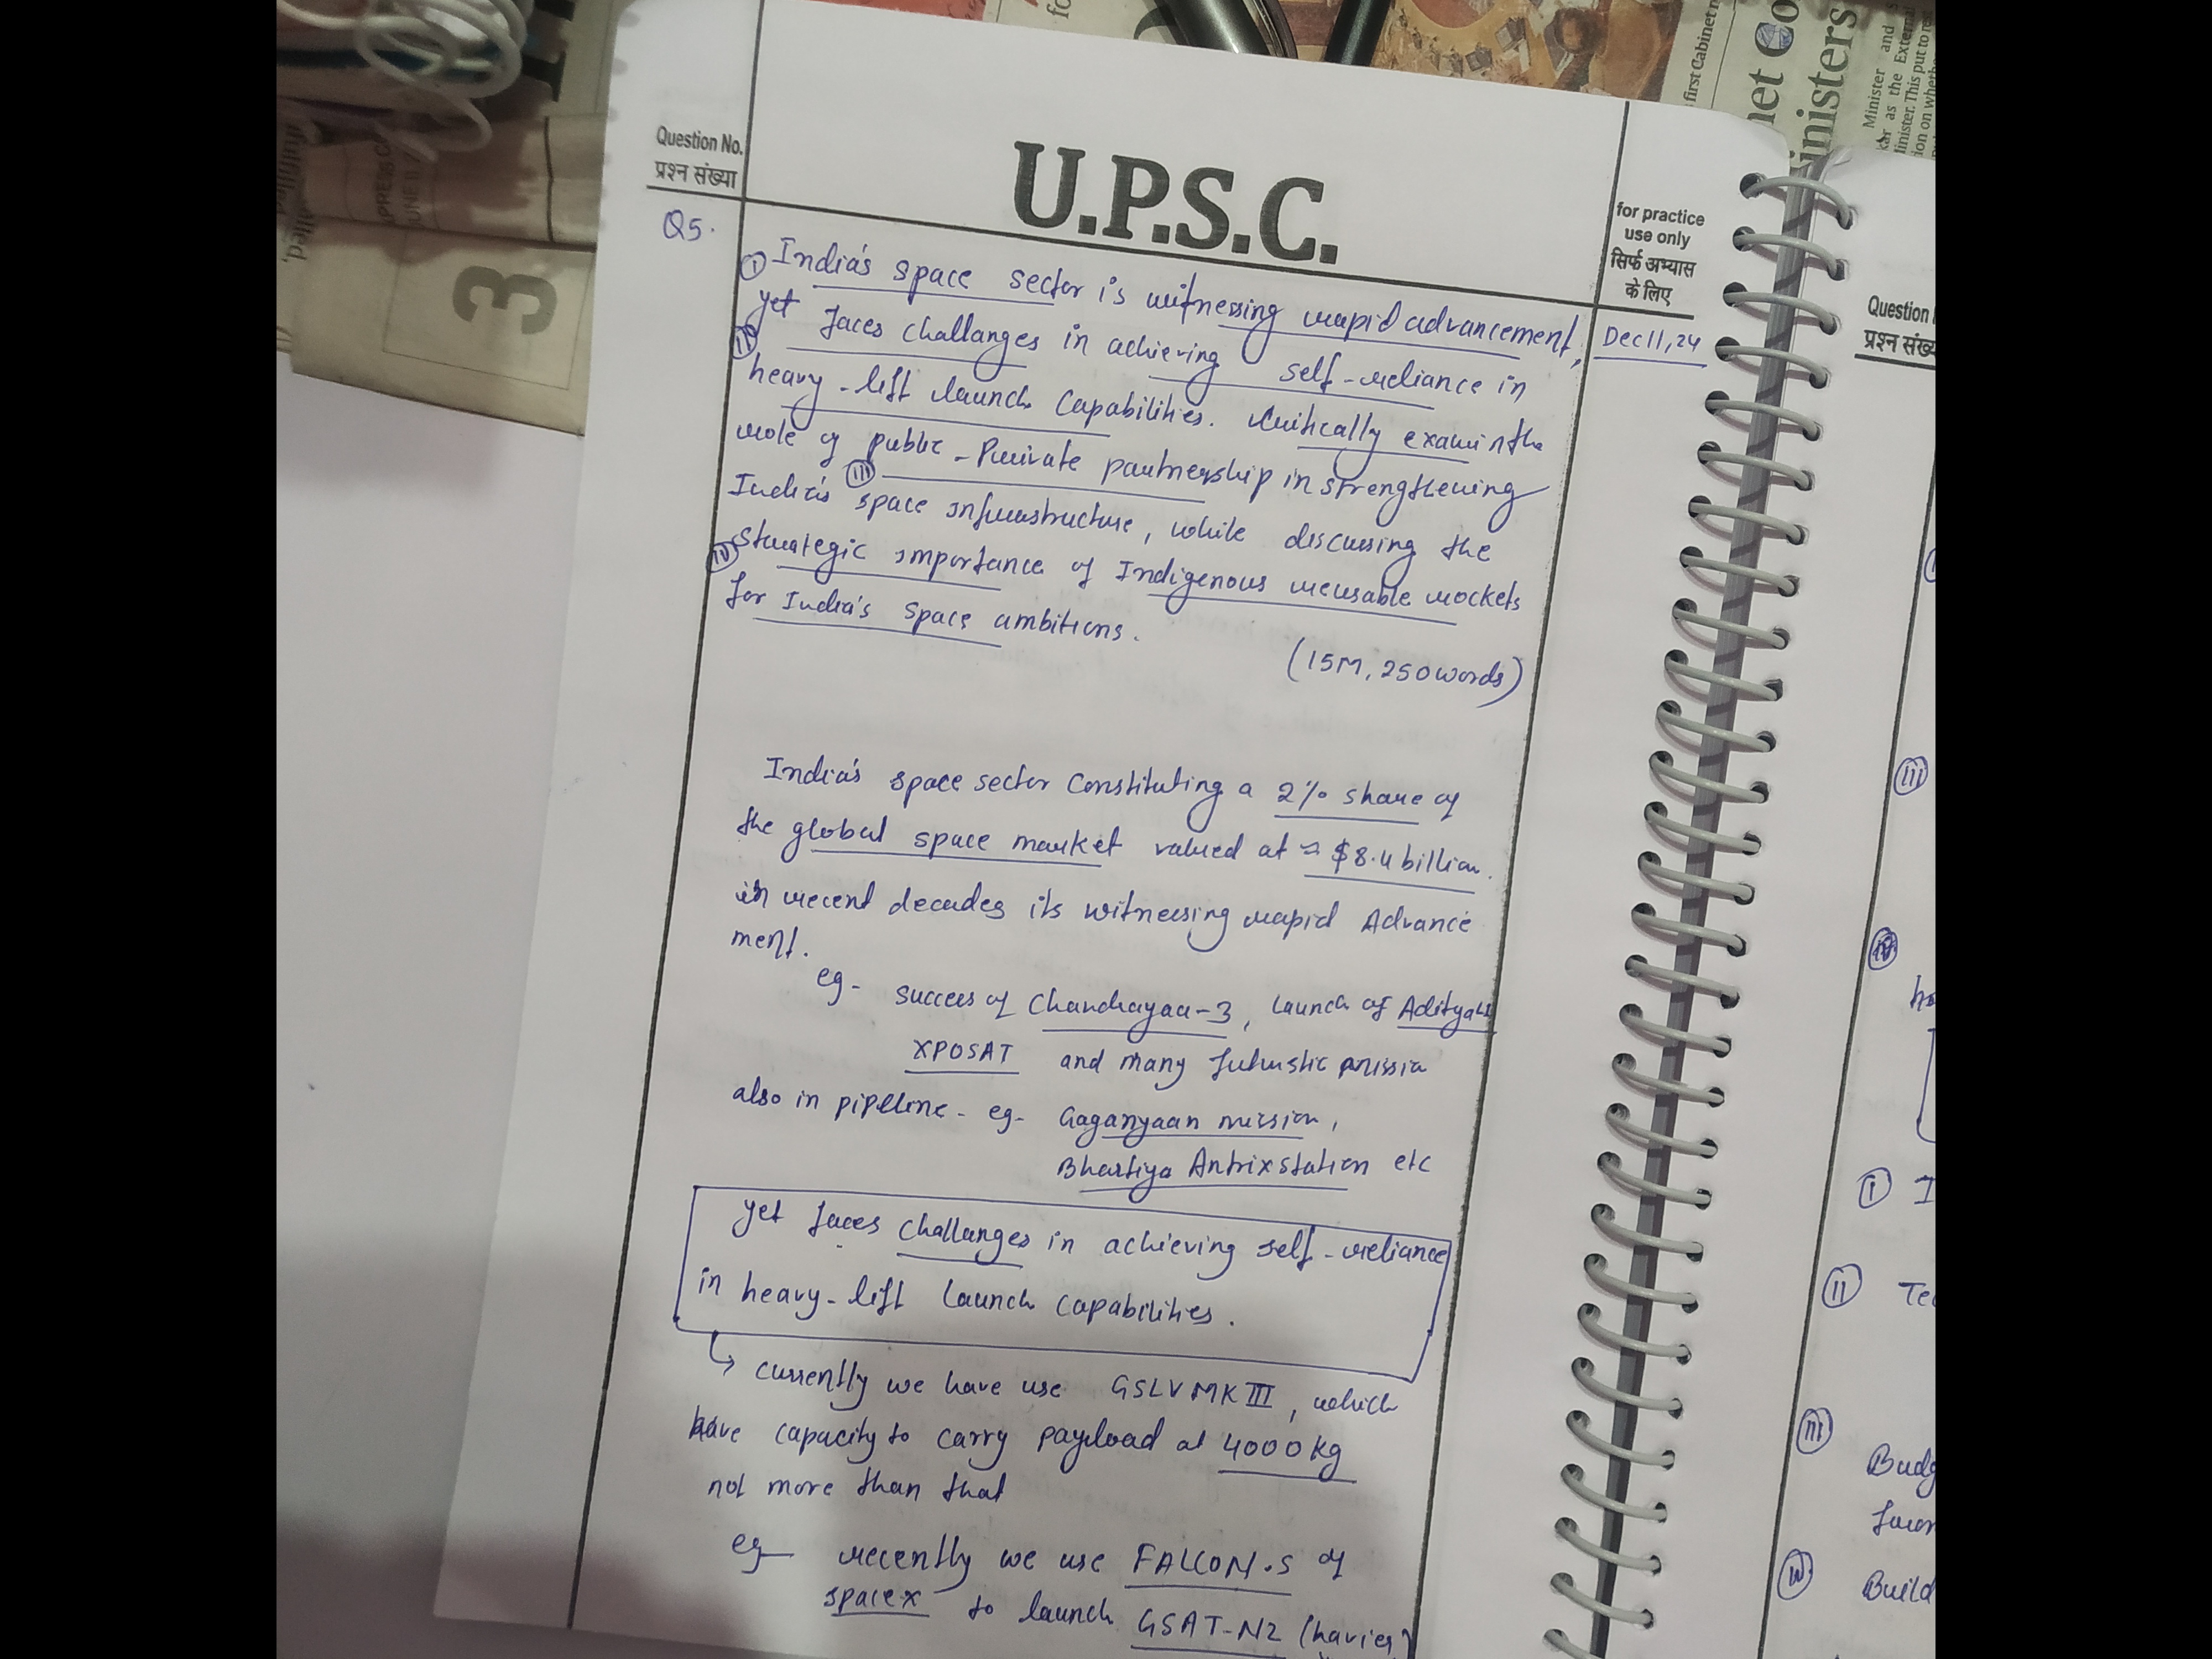 Question No.
प्रश्न संख्या
U.P.S.C.
for practice
use only
सिर्फ अभ्यास
के लिए
Dec 11, 24
Q5.
(i) India's space sector is witnessing rapid advancement,
yet faces challanges in achieving self-reliance in
(ii) heavy-lift launch capabilities. Critically examin the
role of public-Private partnership in strengthening
(iii) India's space infrastructure, while discussing the
(iv) Strategic importance of Indigenous reusable rockets
for India's space ambitions.
(15M, 250 words)
India's space sector constituting a 2% share of
the global space market valued at ≈ $8.4 billion.
in recent decades its witnessing rapid Advance
ment.
eg- success of Chandrayaa-3, launch of Aditya L1
XPOSAT and many futuristic missio
also in pipeline - eg- Gaganyaan mission,
Bhartiya Antrix station etc
yet faces challanges in achieving self-reliance
in heavy-lift launch capabilities.
↳ currently we have use GSLV MK III, which
have capacity to carry payload at 4000 kg
not more than that
eg- recently we use FALCON.S of
spacex to launch GSAT-N2 (havier)
3
net Co
inisters
first Cabinet
Minister and
kar as the External
inister. This put to re
ion on whethe
PRESS C
JUNE
fulfilled
alled,
Question
प्रश्न संख्य
(iii)
(iv)
(i) I
(ii) Te
(iii)
Budg
(iv) Build